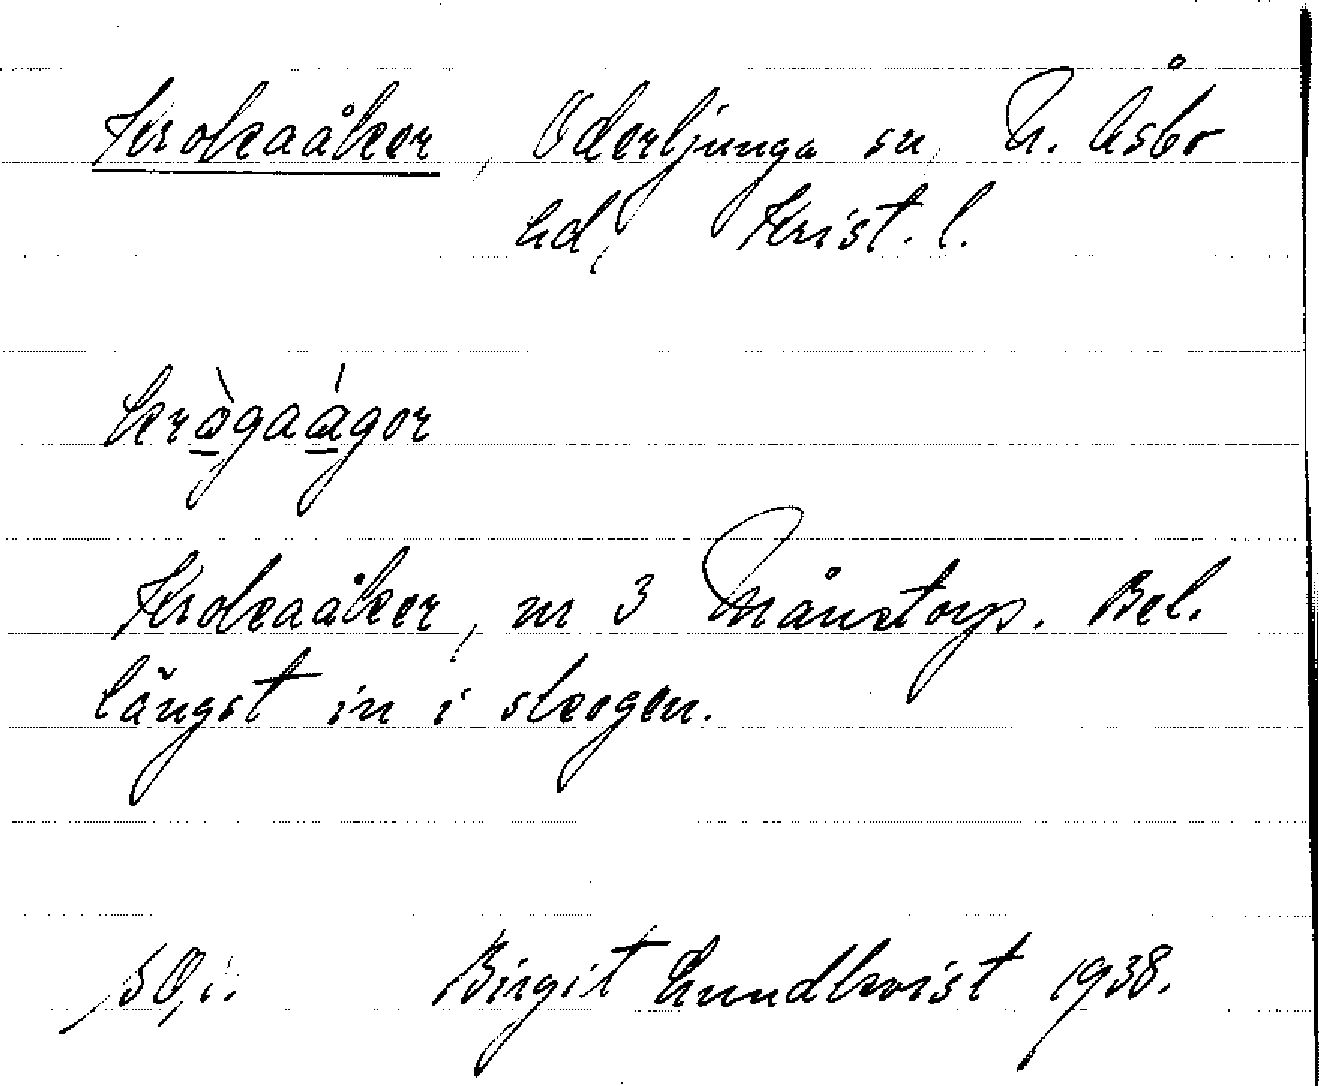 Krokaåker, Oderljunga sn, N. Åsbo
hd, Krist. l.
kràgaágor
Krokaåker, nr 3 Månstorp. Bel.
längst in i skogen.
Birgit Lundkvist 1938.